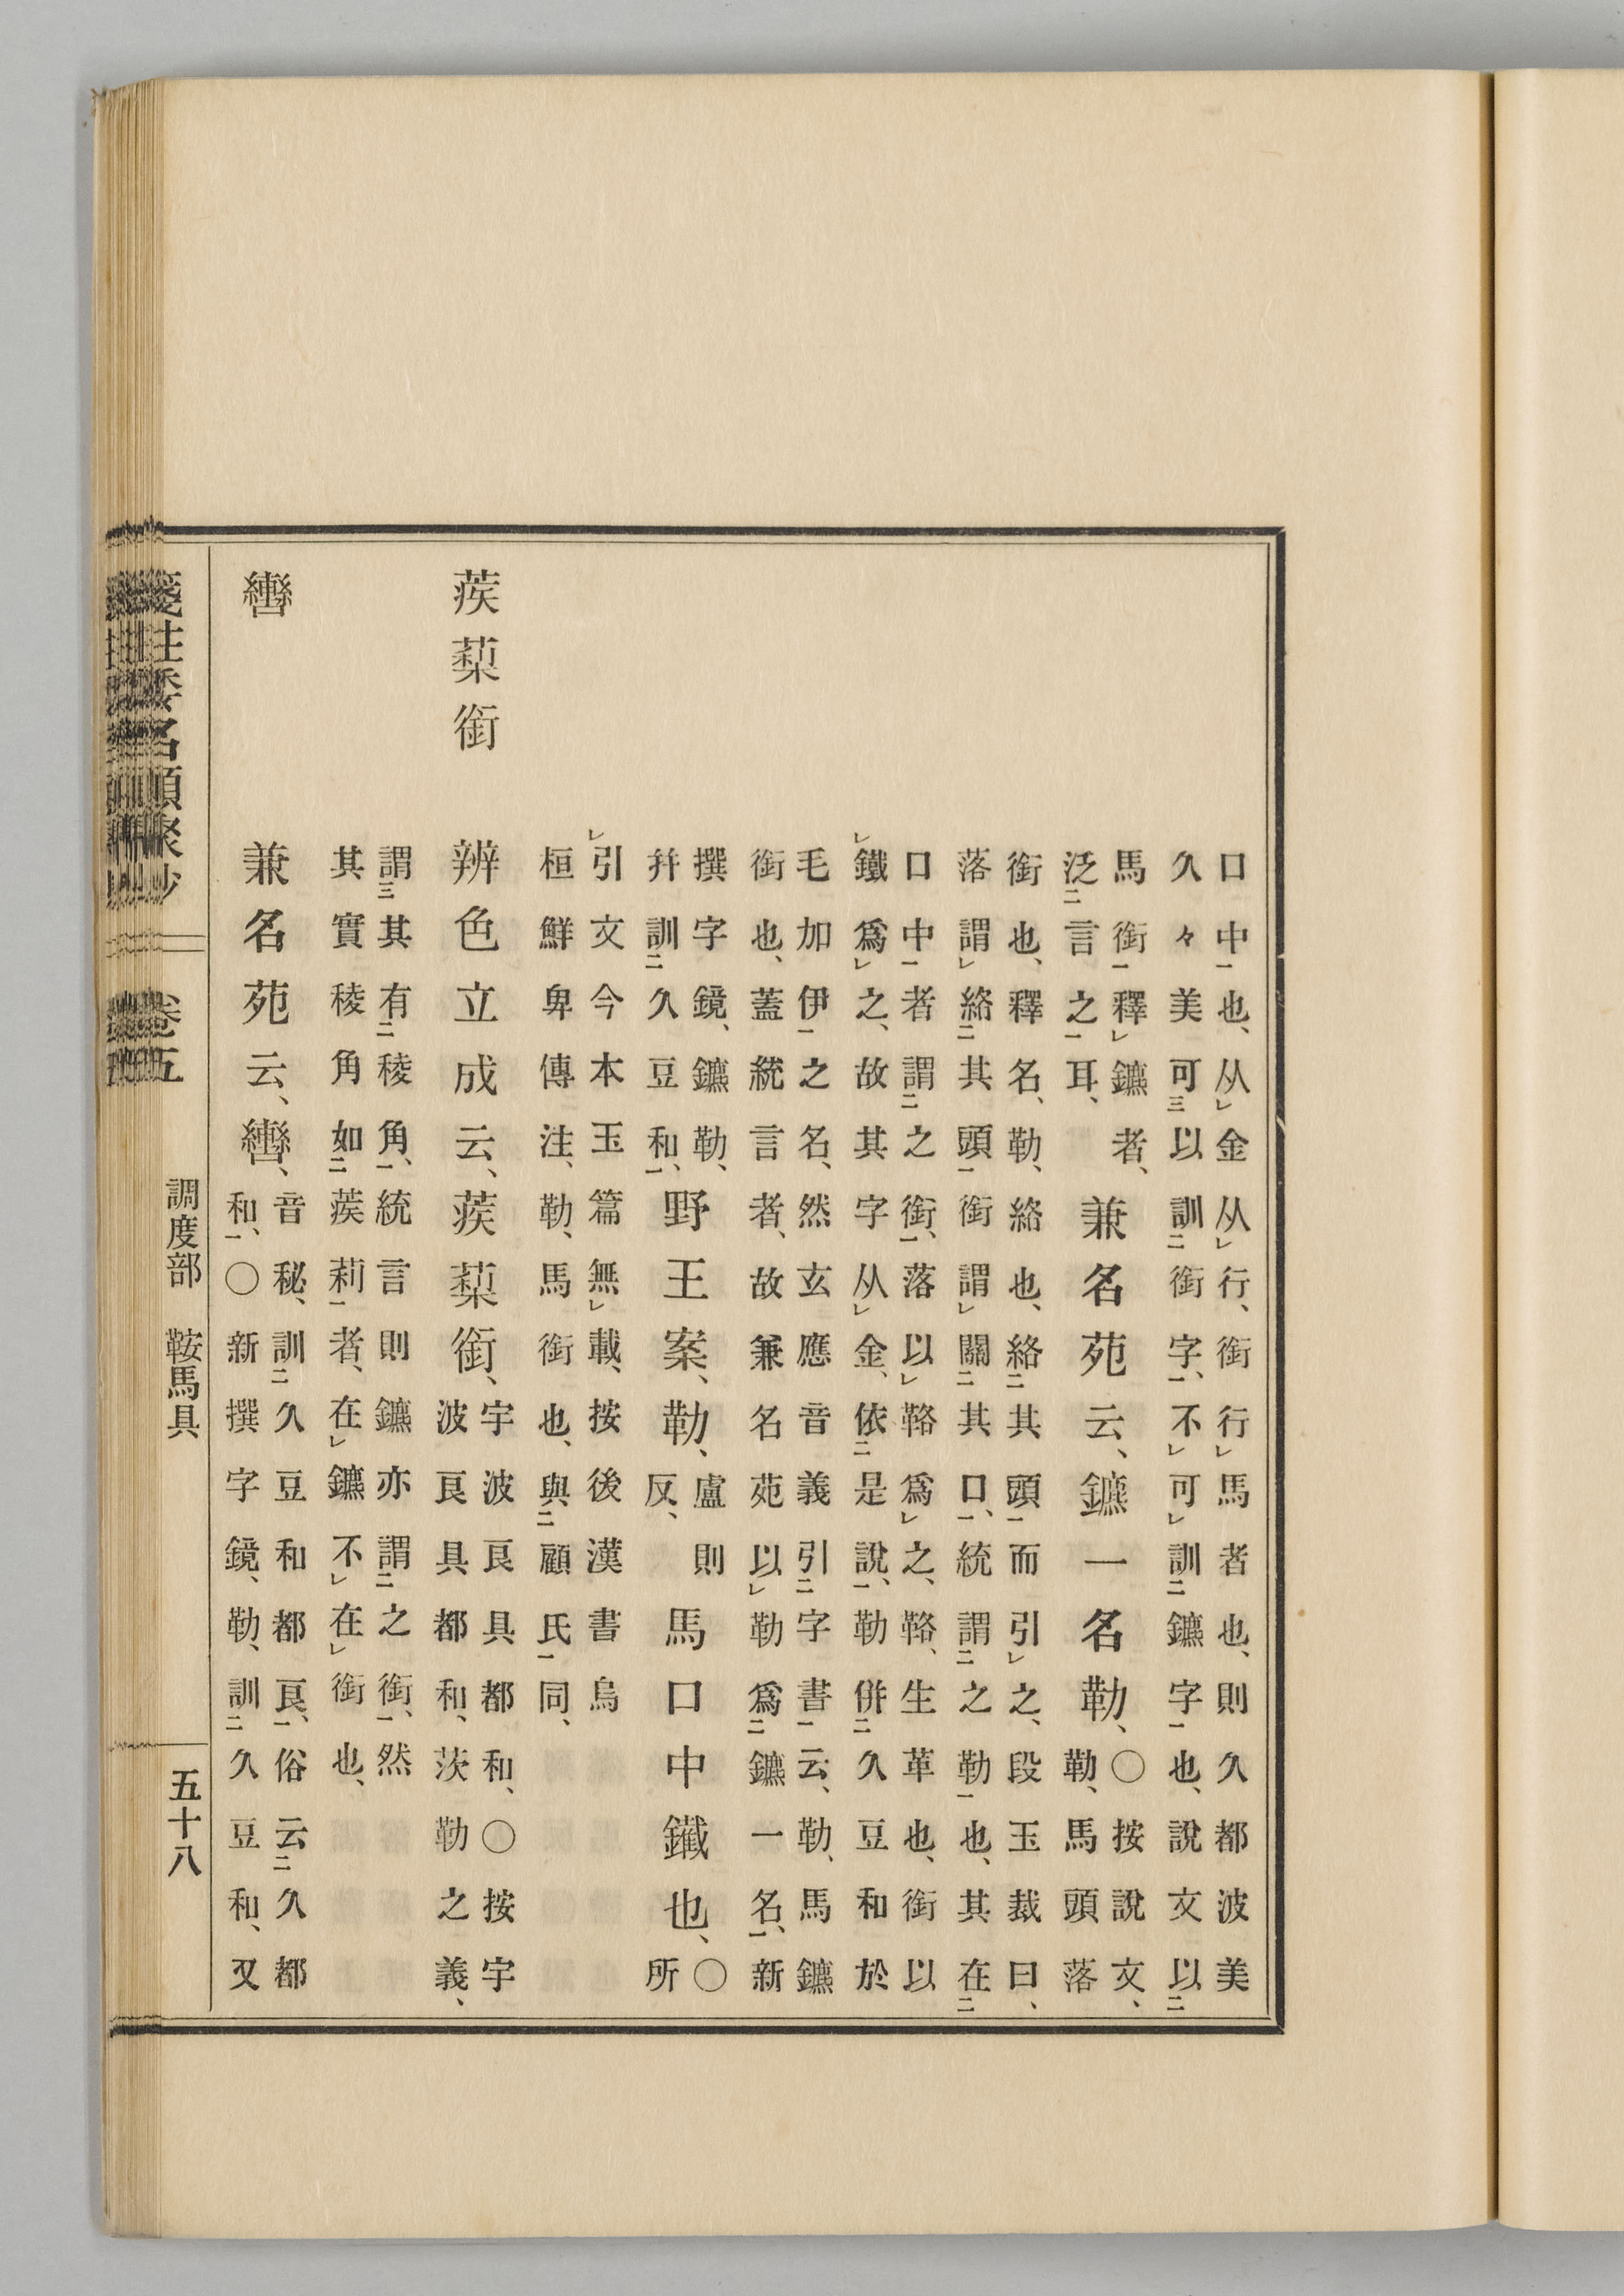 口中一也、从レ金从レ行、銜行レ馬者也、則久都波美
久々美可三以訓二銜字一、不レ可レ訓二鑣字一也、說文以二
馬銜一釋レ鑣者、
泛二言之一耳、
兼名苑云、鑣一名勒、
〇按說文、
勒、馬頭落
銜也、釋名、勒、絡也、絡二其頭一而引レ之、段玉裁曰、
落謂レ絡二其頭一銜謂レ關二其口一、統謂二之勒一也、其在二
口中一者謂二之銜一、落以レ鞈爲レ之、鞈、生革也、銜以
レ鐵爲レ之、故其字从レ金、依二是說一、勒併二久豆和於
毛加伊一之名、然玄應音義引二字書一云、勒、馬鑣
銜也、蓋統言者、故兼名苑以レ勒爲二鑣一名一、新
撰字鏡、鑣勒、
幷訓二久豆和一、
野王案、勒、
盧則
反、
馬口中鐵也、
〇
所
レ引文今本玉篇無レ載、按後漢書烏
桓鮮卑傳注、勒、馬銜也、與二顧氏一同、
蒺䔧銜
辨色立成云、蒺䔧銜、
宇波良具都和、〇按宇
波良具都和、茨勒之義、
謂三其有二稜角一、統言則鑣亦謂二之銜一、然
其實稜角如二蒺莉一者、在レ鑣不レ在レ銜也、
轡
兼名苑云、轡、
音秘、訓二久豆和都良一、俗云二久都
和一、〇新撰字鏡、勒、訓二久豆和、又
箋注倭名類聚抄 卷五
調度部 鞍馬具
五十八